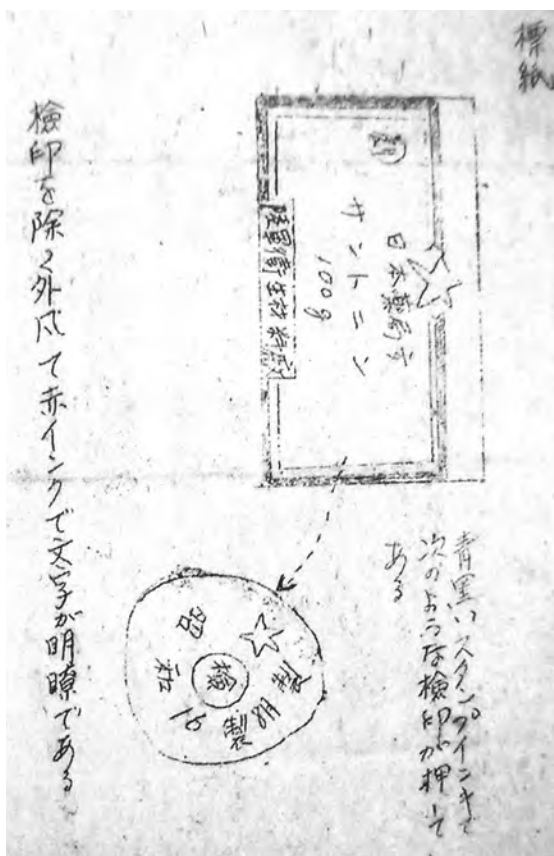 標紙
日本薬局方
サントニン
100g
陸軍衛生材料廠
青黒いスタンプインキで
次のような検印が押して
ある
檢
製
檢印を除く外凡て赤インクで文字が明瞭である